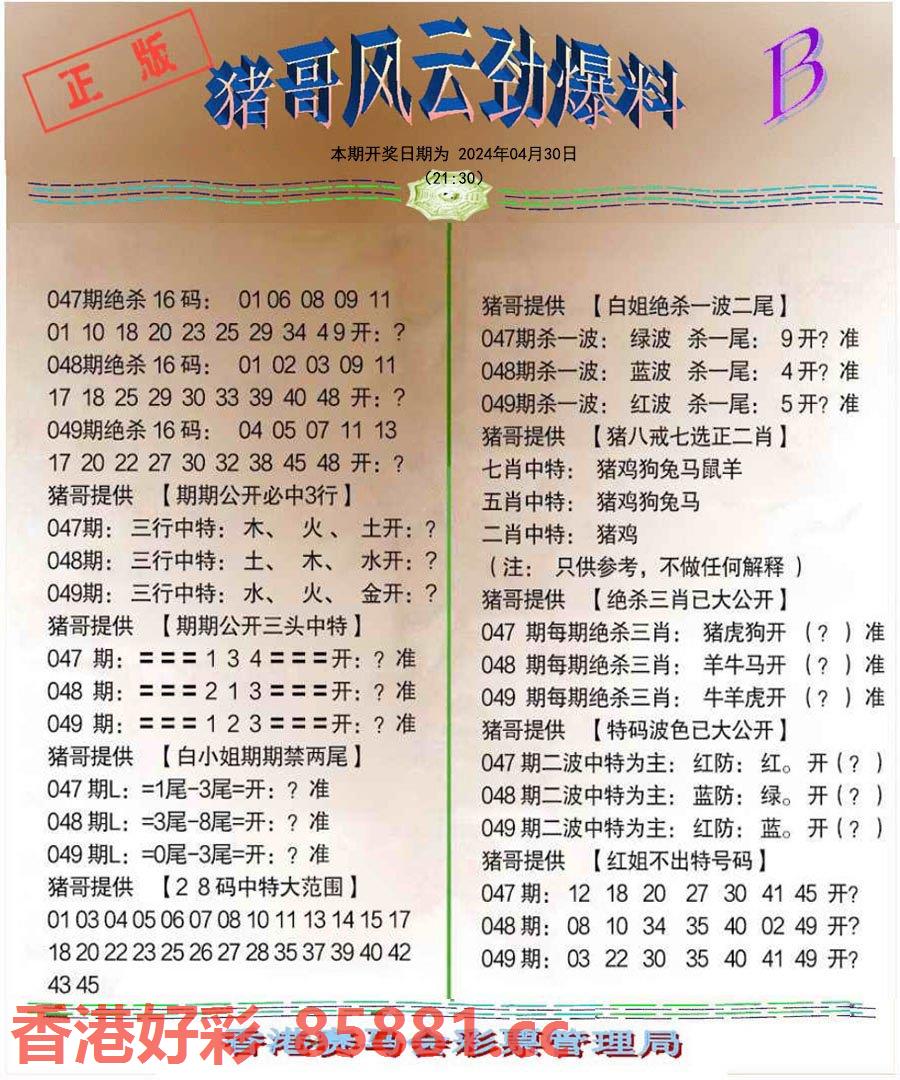 正版
猪哥风云劲爆料
B
本期开奖日期为 2024年04月30日
(21:30)
047期绝杀16码： 01 06 08 09 11
01 10 18 20 23 25 29 34 49开：？
048期绝杀16码： 01 02 03 09 11
17 18 25 29 30 33 39 40 48 开：？
049期绝杀16码： 04 05 07 11 13
17 20 22 27 30 32 38 45 48 开：？
猪哥提供 【期期公开必中3行】
047期：三行中特：木、 火、 土开：？
048期：三行中特：土、 木、 水开：？
049期：三行中特：水、 火、 金开：？
猪哥提供 【期期公开三头中特】
047 期：===134===开：？准
048 期：===213===开：？准
049 期：===123===开：？准
猪哥提供 【白小姐期期禁两尾】
047期L：=1尾-3尾=开：？准
048期L：=3尾-8尾=开：？准
049期L：=0尾-3尾=开：？准
猪哥提供 【28码中特大范围】
01 03 04 05 06 07 08 10 11 13 14 15 17
18 20 22 23 25 26 27 28 35 37 39 40 42
43 45
猪哥提供 【白姐绝杀一波二尾】
047期杀一波： 绿波 杀一尾： 9开？准
048期杀一波： 蓝波 杀一尾： 4开？准
049期杀一波： 红波 杀一尾： 5开？准
猪哥提供 【猪八戒七选正二肖】
七肖中特： 猪鸡狗兔马鼠羊
五肖中特： 猪鸡狗兔马
二肖中特： 猪鸡
（注： 只供参考，不做任何解释 ）
猪哥提供 【绝杀三肖已大公开】
047 期每期绝杀三肖： 猪虎狗开 （？）准
048 期每期绝杀三肖： 羊牛马开 （？）准
049 期每期绝杀三肖： 牛羊虎开 （？）准
猪哥提供 【特码波色已大公开】
047期二波中特为主：红防：红。开（？）
048期二波中特为主：蓝防：绿。开（？）
049期二波中特为主：红防：蓝。开（？）
猪哥提供 【红姐不出特号码】
047期：12 18 20 27 30 41 45 开?
048期：08 10 34 35 40 02 49 开?
049期：03 22 30 35 40 41 49 开?
香港好彩 85881.cc
香港赛马会彩票管理局